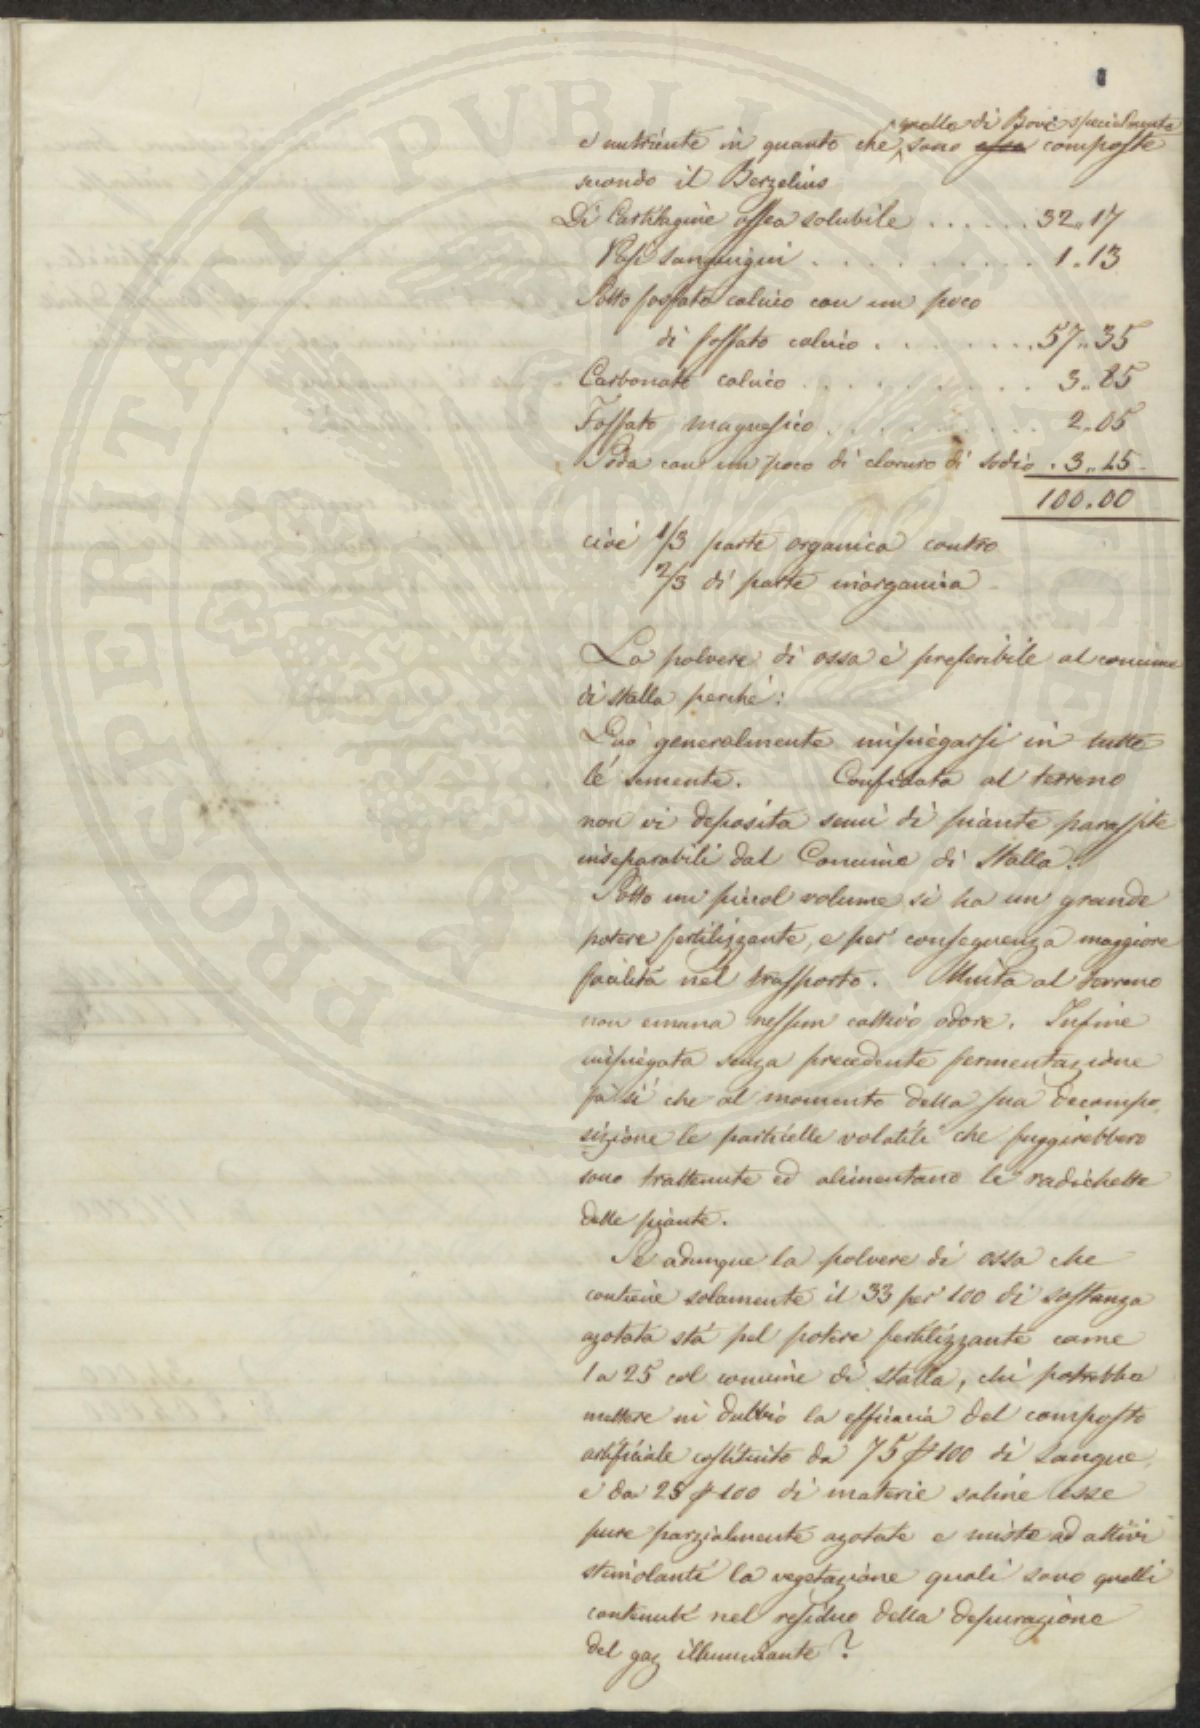 quelle di Bove specialmente
e nutriente in quanto che sono esse composte
secondo il Berzelius
Di Cartilagine ossea solubile ...... 32.17
Vasi sanguigni .......... 1.13
Sotto fosfato calcico con un poco
di fosfato calcico ........ 57.35
Carbonato calcico .......... 3.85
Fosfato magnesico ......... 2.05
Soda con un poco di cloruro di sodio . 3.45
100.00
cioè 1/3 parte organica contro
2/3 di parte inorganica
La polvere di ossa è preferibile al concime
di stalla perché:
Può generalmente impiegarsi in tutte
le semente. Confidata al terreno
non vi deposita semi di piante parassite
inseparabili dal Concime di Stalla.
Sotto un piccol volume si ha un grande
potere fertilizzante, e per conseguenza maggiore
facilità nel trasporto. Unita al terreno
non emana nessun cattivo odore. Infine
impiegata senza precedente fermentazione
fa sì che al momento della sua decompo
sizione le particelle volatili che fuggirebbero
sono trattenute ed alimentano le radichette
delle piante.
Se adunque la polvere di ossa che
contiene solamente il 33 per 100 di sostanza
azotata stà pel potere fertilizzante come
1 a 25 col concime di stalla, chi potrebbe
mettere in dubbio la efficacia del composto
artificiale costituito da 75 p 100 di sangue
e da 25 p 100 di materie saline esse
pure parzialmente azotate e miste ad attivi
stimolanti la vegetazione quali sono quelli
contenuti nel residuo della depurazione
del gaz illuminante?
PROSPERITATI PUBLICAE